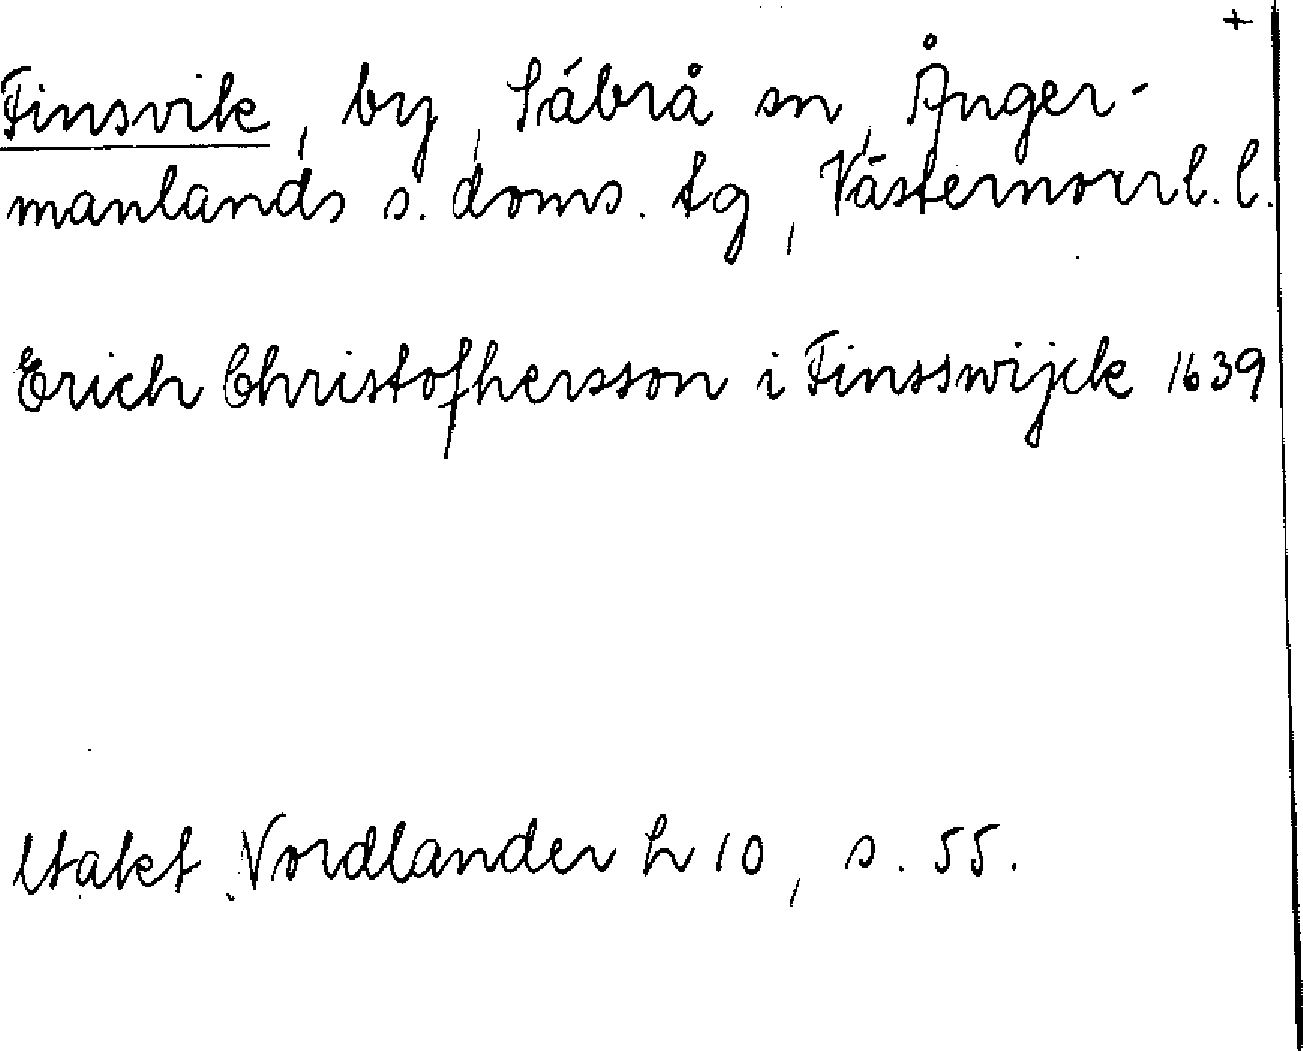 +
Finsvik, by, Säbrå sn, Ånger-
manlands s. doms. tg, Västernorrl. l.
Erich Christofhersson i Finsswijck 1639
Utakt Nordlander h 10, s. 55.